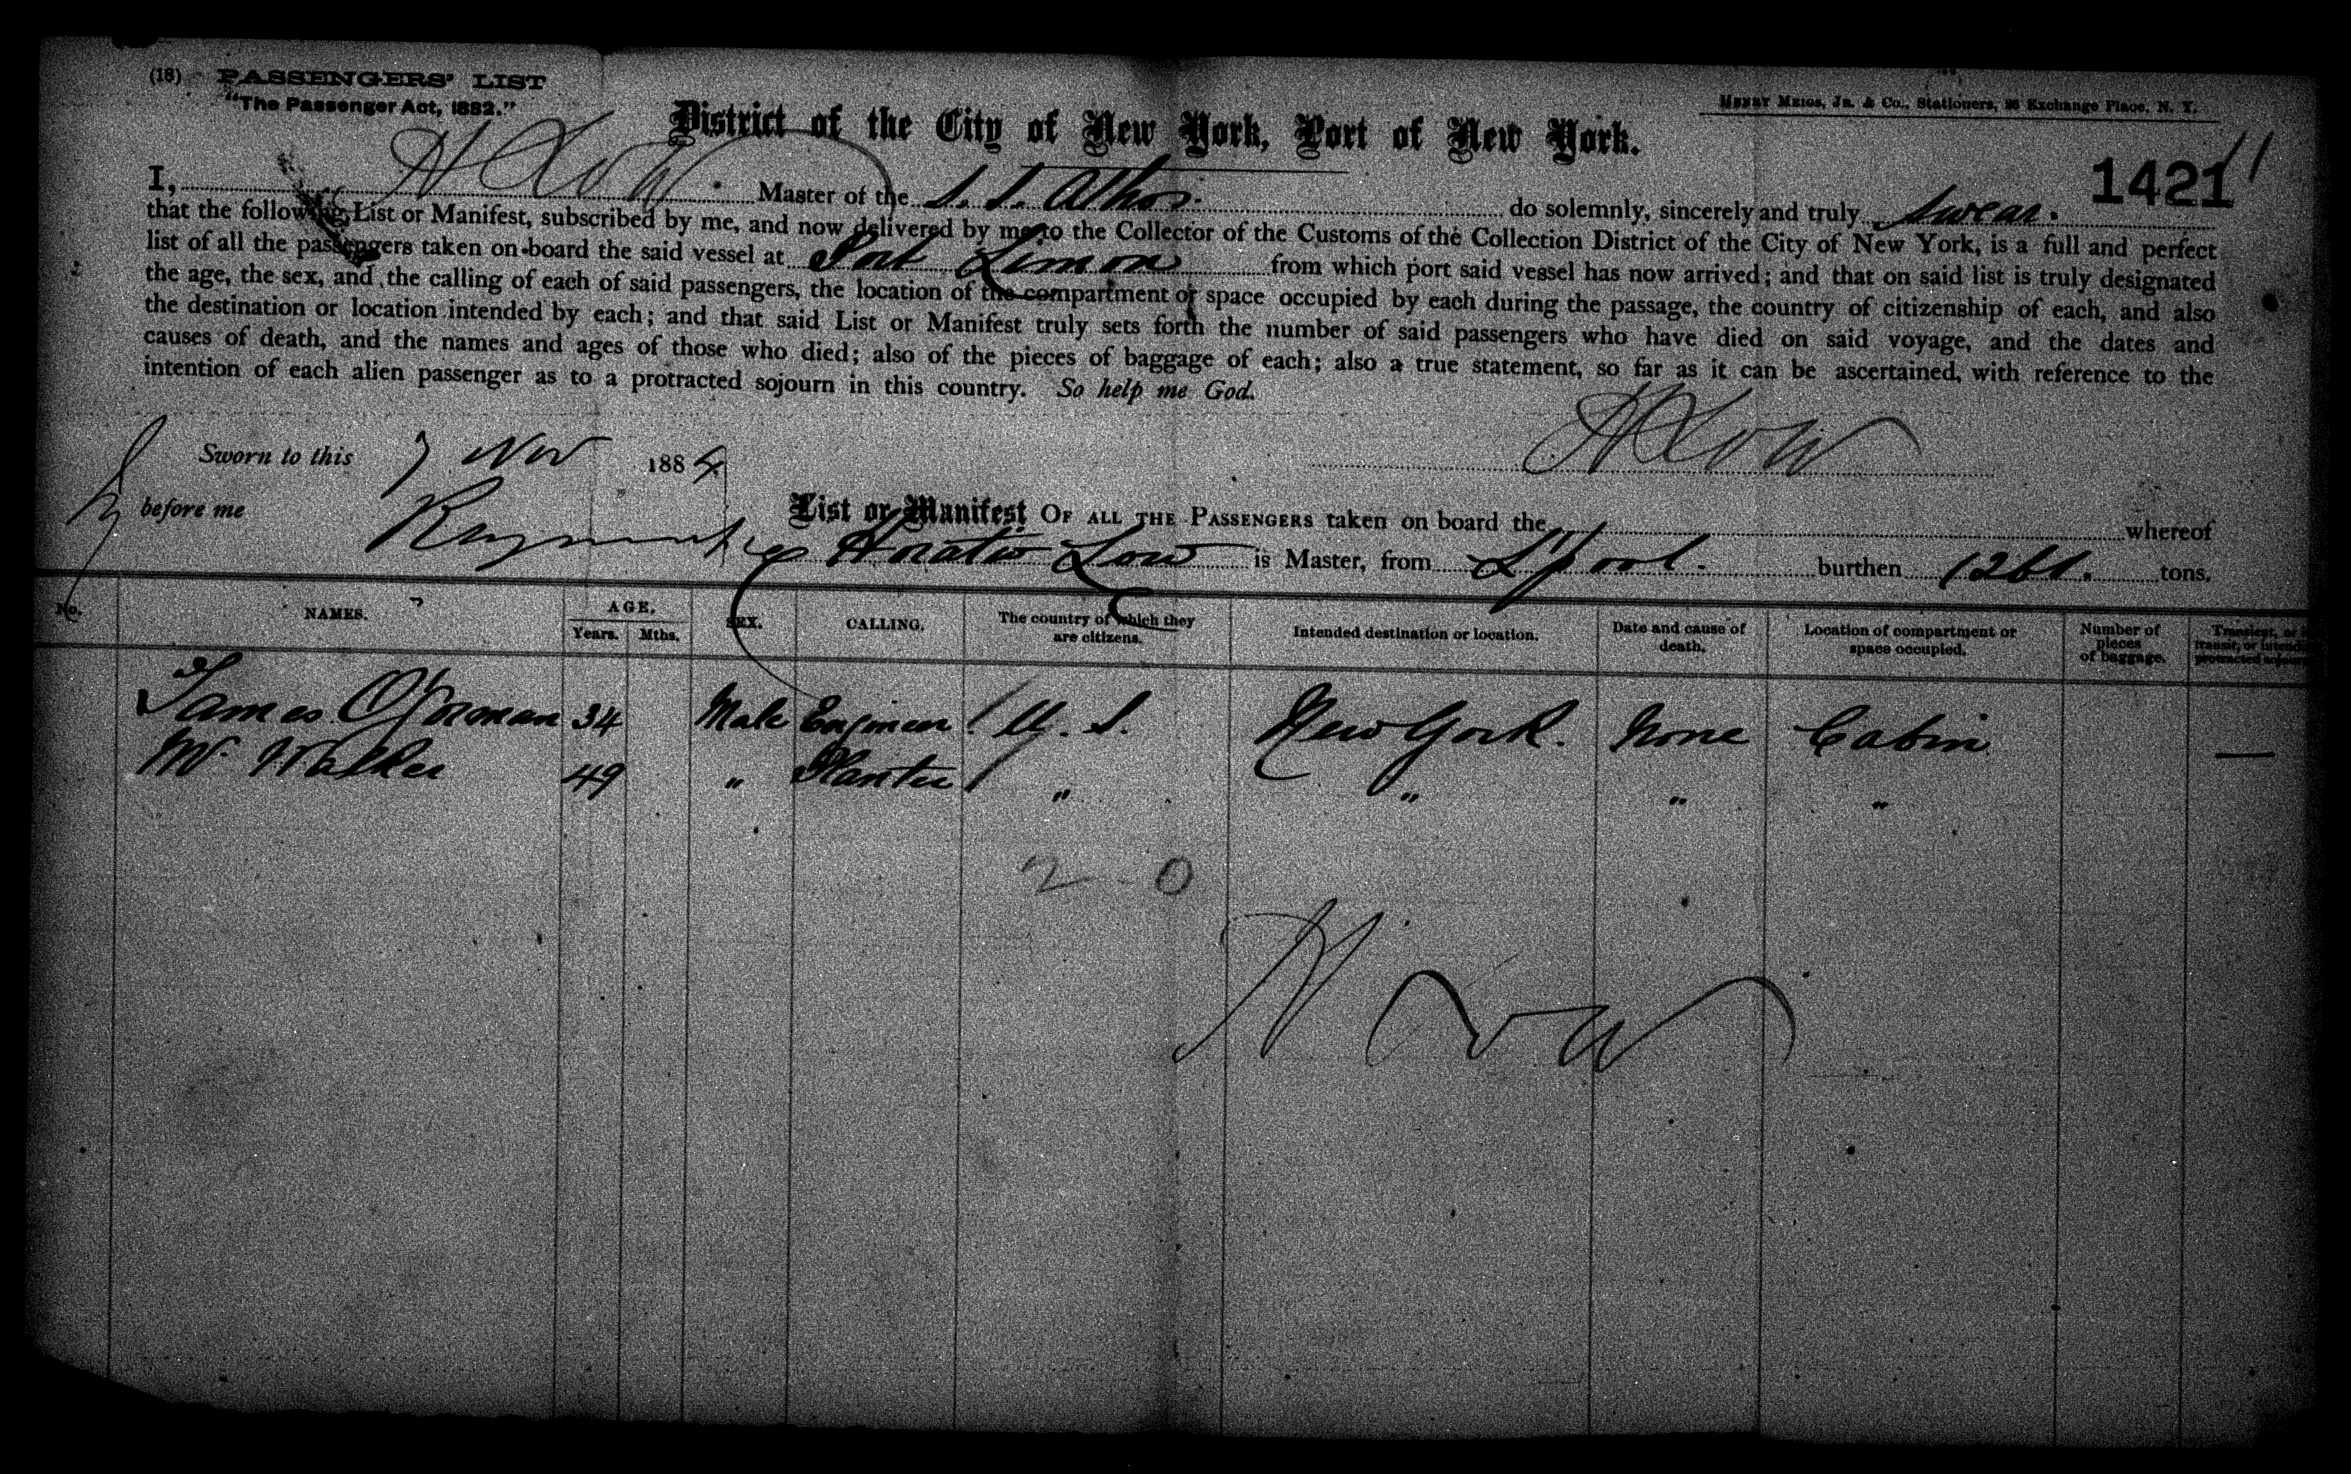 (18) PASSENGERS' LIST
"The Passenger Act, 1882."
HENRY MEIGS, JR. & CO., Stationers, 26 Exchange Place, N. Y.
District of the City of New York, Port of New York.
1421
11
I, H Low Master of the S. S. Athos. do solemnly, sincerely and truly swear.
that the following List or Manifest, subscribed by me, and now delivered by me to the Collector of the Customs of the Collection District of the City of New York, is a full and perfect
list of all the passengers taken on board the said vessel at Port Limon from which port said vessel has now arrived; and that on said list is truly designated
the age, the sex, and the calling of each of said passengers, the location of the compartment or space occupied by each during the passage, the country of citizenship of each, and also
the destination or location intended by each; and that said List or Manifest truly sets forth the number of said passengers who have died on said voyage, and the dates and
causes of death, and the names and ages of those who died; also of the pieces of baggage of each; also a true statement, so far as it can be ascertained, with reference to the
intention of each alien passenger as to a protracted sojourn in this country. So help me God.
H Low
Sworn to this 7 Nov 1884
before me
List or Manifest OF ALL THE PASSENGERS taken on board the whereof
Horatio Low is Master, from L'pool. burthen 1261. tons.
No. NAMES. AGE. Years. Mths. SEX. CALLING. The country of which they are citizens. Intended destination or location. Date and cause of death. Location of compartment or space occupied. Number of pieces of baggage.
James O'Gorman 34 Male Engineer U. S. New York. None Cabin —
Mr Walker 49 " Planter " " " "
2 - 0
H Low